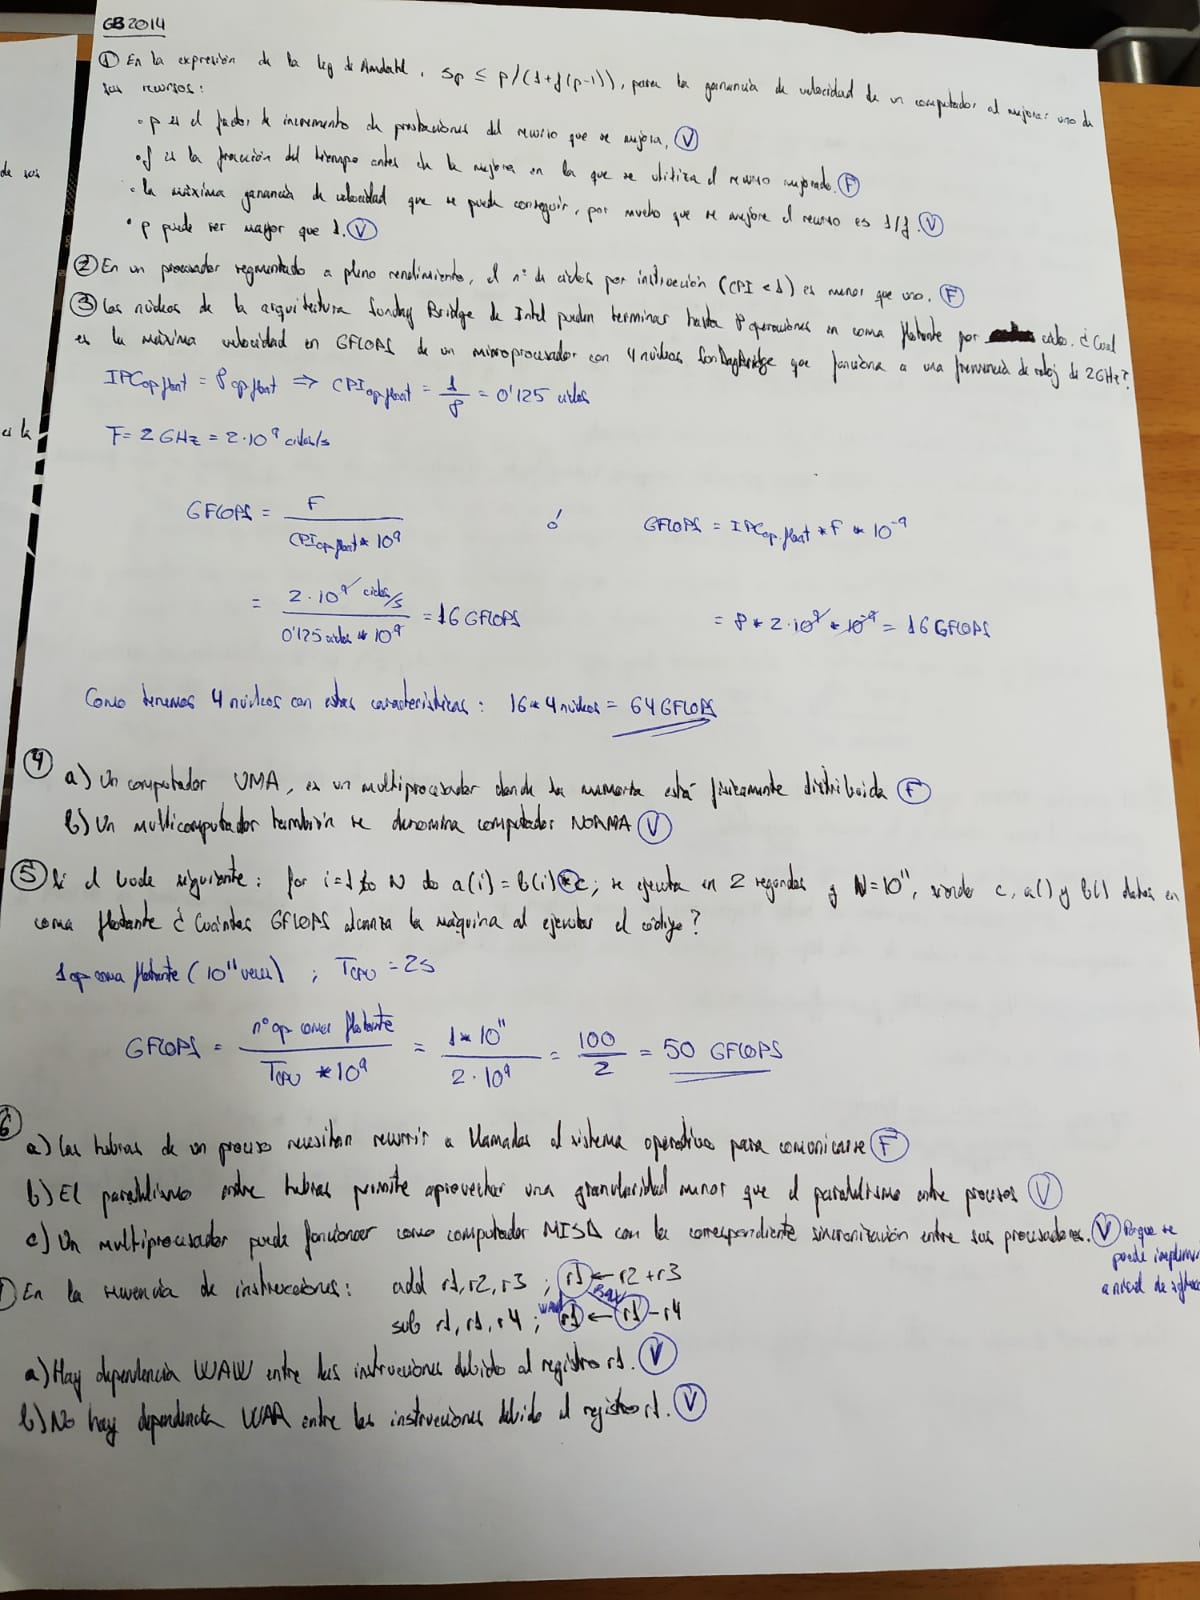 GB2014
① En la expresión de la ley de Amdahl, Sp ≤ p/(1+f(p-1)), para la ganancia de velocidad de un computador al mejorar uno de
sus recursos:
• p es el factor de incremento de prestaciones del recurso que se mejora. V
• f es la fracción del tiempo antes de la mejora en la que se utiliza el recurso mejorado. F
• la máxima ganancia de velocidad que se puede conseguir, por mucho que se mejore el recurso es 1/f. V
• p puede ser mayor que 1. V
② En un procesador segmentado a pleno rendimiento, el nº de ciclos por instrucción (CPI < 1) es menor que uno. F
③ Los núcleos de la arquitectura Sanday Bridge de Intel pueden terminar hasta 8 operaciones en coma flotante por ciclo. ¿Cuál
es la máxima velocidad en GFLOPS de un microprocesador con 4 núcleos SandayBridge que funciona a una frecuencia de reloj de 2GHz?
IPCop.float = 8 op.float ⇒ CPIop.float = 1/8 = 0'125 ciclos
F = 2 GHz = 2·10⁹ ciclos/s
GFLOPS = F / (CPIop.float * 10⁹) ó GFLOPS = IPCop.float * F * 10⁻⁹
= 2·10⁹ ciclos/s / (0'125 ciclos * 10⁹) = 16 GFLOPS = 8 * 2·10⁹ * 10⁻⁹ = 16 GFLOPS
Como tenemos 4 núcleos con estas características: 16 * 4 núcleos = 64 GFLOPS
④ a) Un computador UMA, es un multiprocesador donde la memoria está físicamente distribuida F
b) Un multicomputador también se denomina computador NORMA V
⑤ Si el bucle siguiente: for i=1 to N do a(i) = b(i)*c; se ejecuta en 2 segundos y N=10¹¹, siendo c, a() y b() datos en
coma flotante ¿Cuántos GFLOPS alcanza la máquina al ejecutar el código?
1 op coma flotante (10¹¹ veces) ; TCPU = 2s
GFLOPS = nº op coma flotante / (TCPU * 10⁹) = 1 * 10¹¹ / 2·10⁹ = 100/2 = 50 GFLOPS
6
a) Las hebras de un proceso necesitan recurrir a llamadas al sistema operativo para comunicarse F
b) El paralelismo entre hebras permite aprovechar una granularidad menor que el paralelismo entre procesos V
c) Un multiprocesador puede funcionar como computador MISD con la correspondiente sincronización entre sus procesadores. V Porque se
puede implemen
a nivel de
En la secuencia de instrucciones: add r1, r2, r3 ; r1 ← r2 + r3
WAW RAW
sub r1, r1, r4 ; r1 ← r1 - r4
a) Hay dependencia WAW entre las instrucciones debido al registro r1. V
b) No hay dependencia WAR entre las instrucciones debido al registro r1. V
de sus
es la